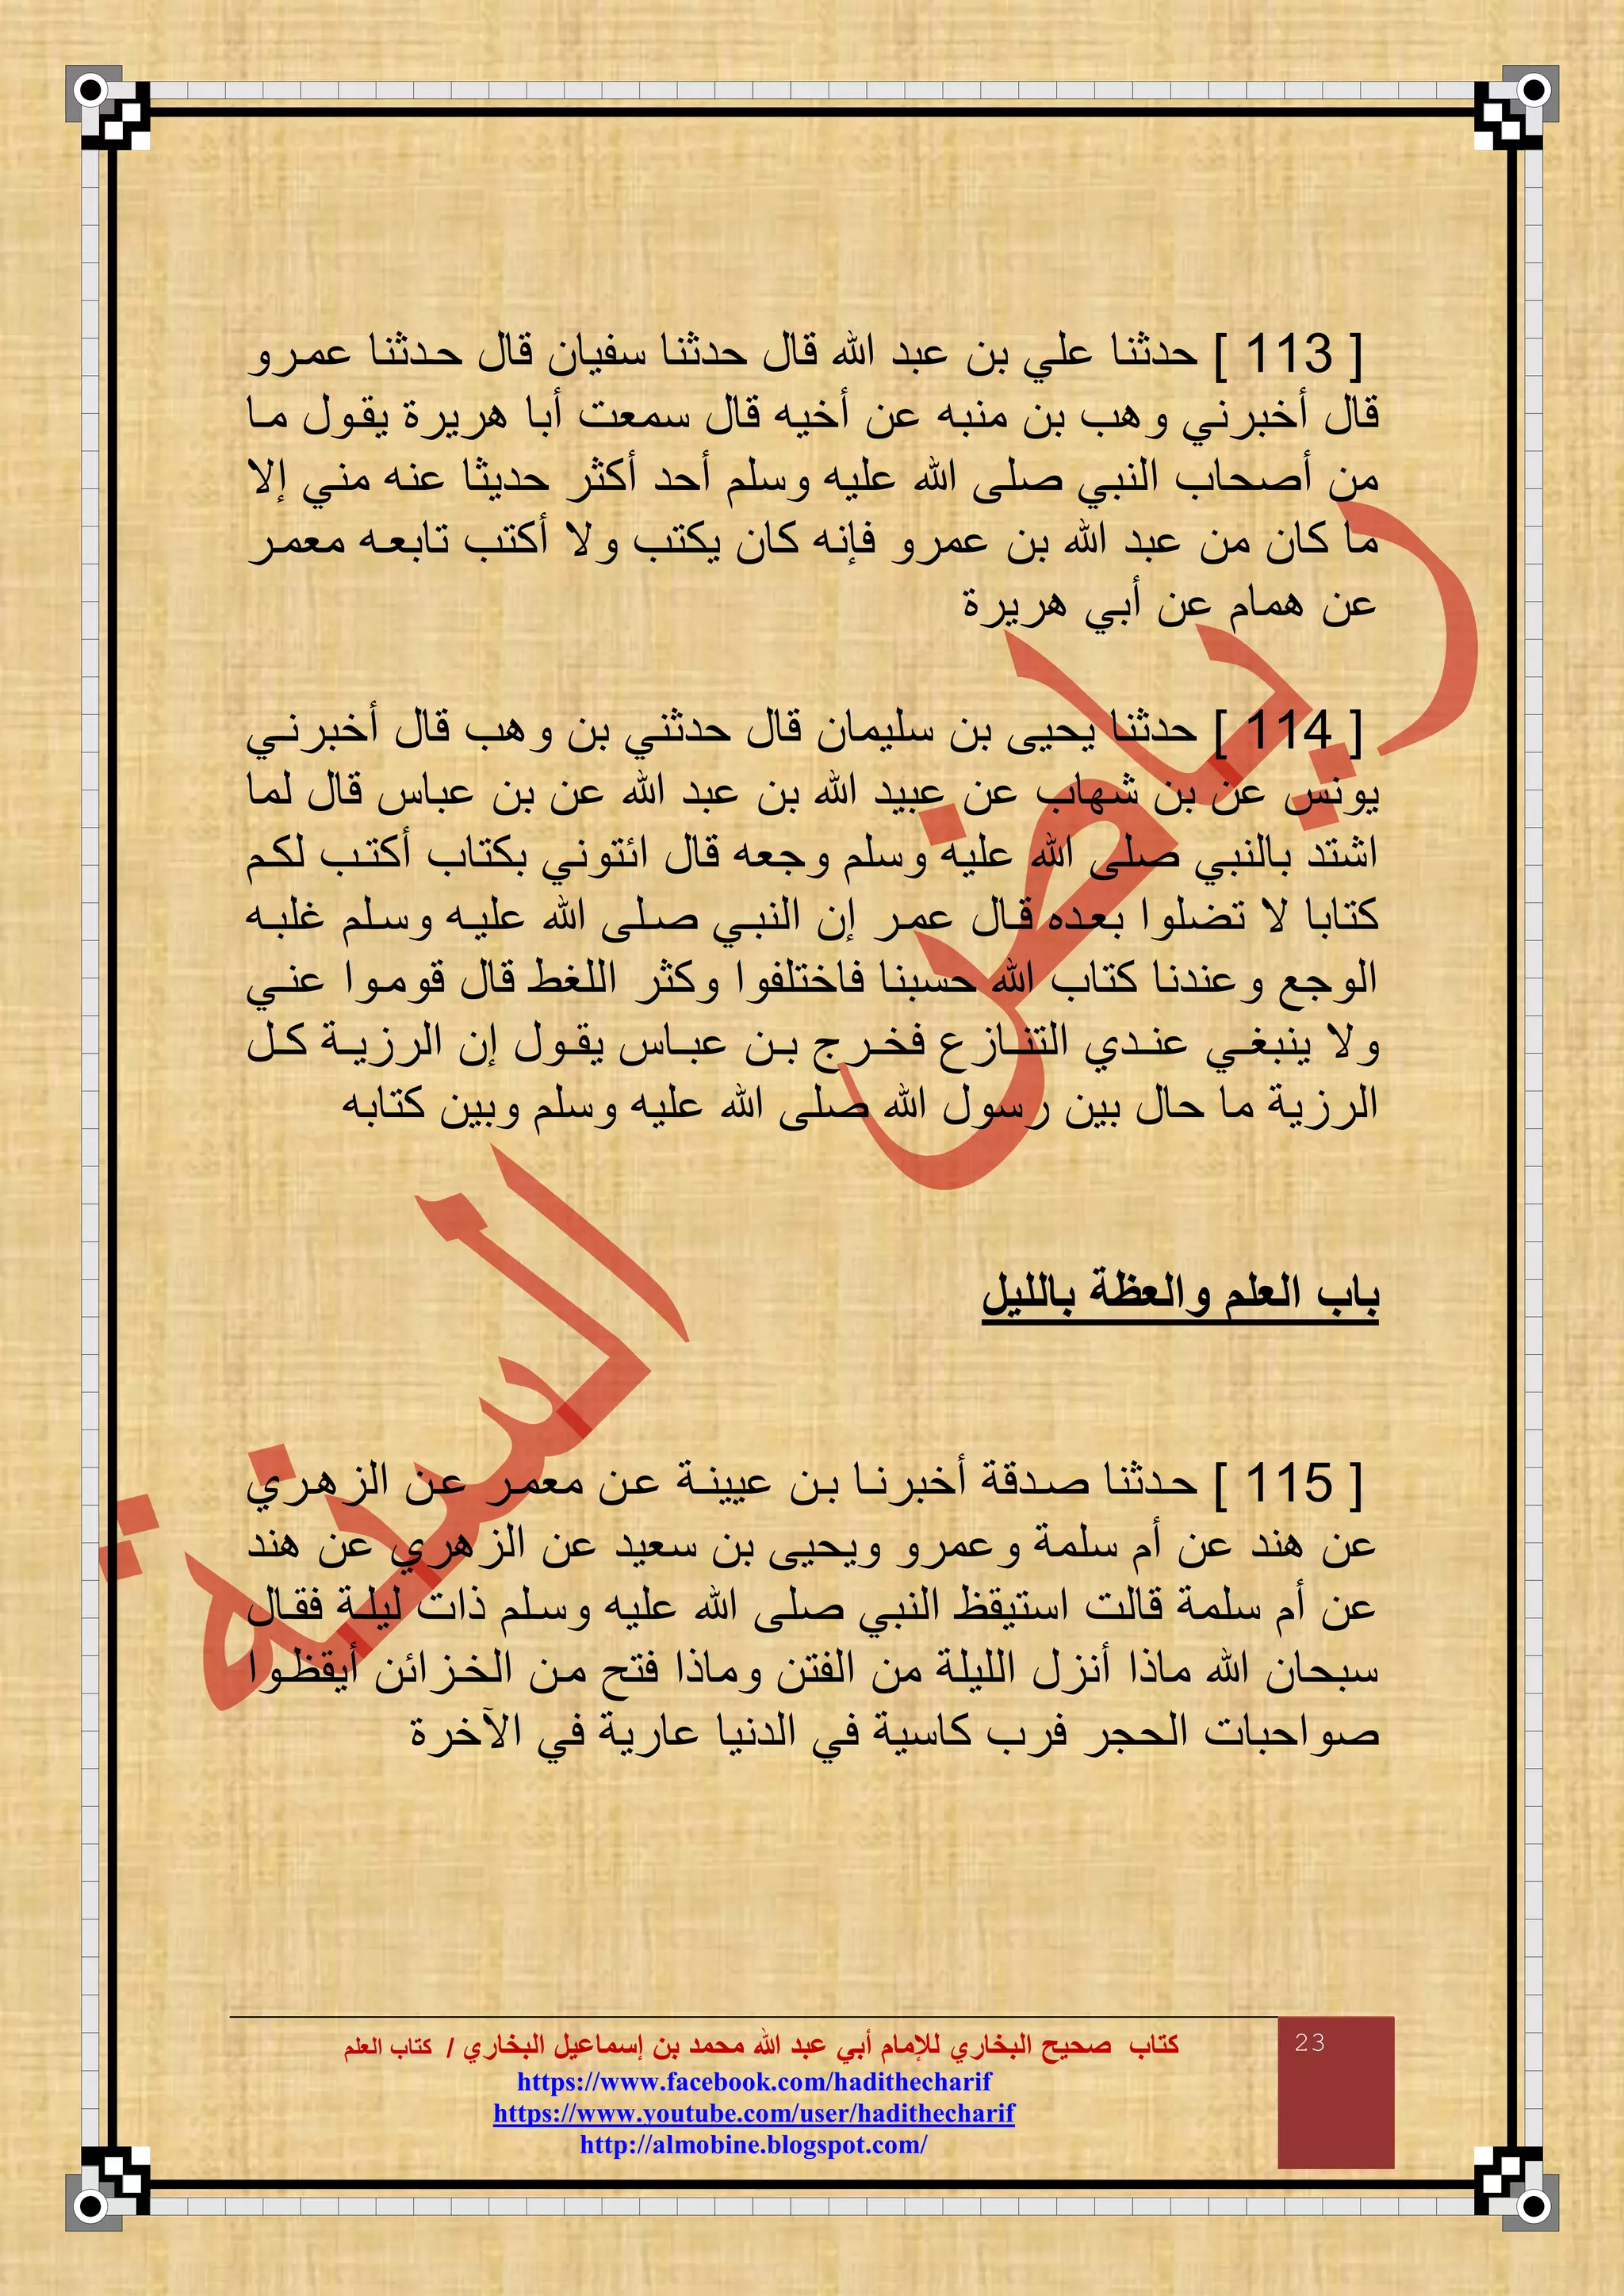 [ 113 ] حدثنا علي بن عبد الله قال حدثنا سفيان قال حدثنا عمرو
قال أخبرني وهب بن منبه عن أخيه قال سمعت أبا هريرة يقول ما
من أصحاب النبي صلى الله عليه وسلم أحد أكثر حديثا عنه مني إلا
ما كان من عبد الله بن عمرو فإنه كان يكتب ولا أكتب تابعه معمر
عن همام عن أبي هريرة
[ 114 ] حدثنا يحيى بن سليمان قال حدثني بن وهب قال أخبرني
يونس عن بن شهاب عن عبيد الله بن عبد الله عن بن عباس قال لما
اشتد بالنبي صلى الله عليه وسلم وجعه قال ائتوني بكتاب أكتب لكم
كتابا لا تضلوا بعده قال عمر إن النبي صلى الله عليه وسلم غلبه
الوجع وعندنا كتاب الله حسبنا فاختلفوا وكثر اللغط قال قوموا عني
ولا ينبغي عندي التنازع فخرج بن عباس يقول إن الرزية كل
الرزية ما حال بين رسول الله صلى الله عليه وسلم وبين كتابه
باب العلم والعظة بالليل
[ 115 ] حدثنا صدقة أخبرنا بن عيينة عن معمر عن الزهري
عن هند عن أم سلمة وعمرو ويحيى بن سعيد عن الزهري عن هند
عن أم سلمة قالت استيقظ النبي صلى الله عليه وسلم ذات ليلة فقال
سبحان الله ماذا أنزل الليلة من الفتن وماذا فتح من الخزائن أيقظوا
صواحبات الحجر فرب كاسية في الدنيا عارية في الآخرة
رياض السنة
23
كتاب صحيح البخاري للإمام أبي عبد الله محمد بن إسماعيل البخاري / كتاب العلم
https://www.facebook.com/hadithecharif
https://www.youtube.com/user/hadithecharif
http://almobine.blogspot.com/